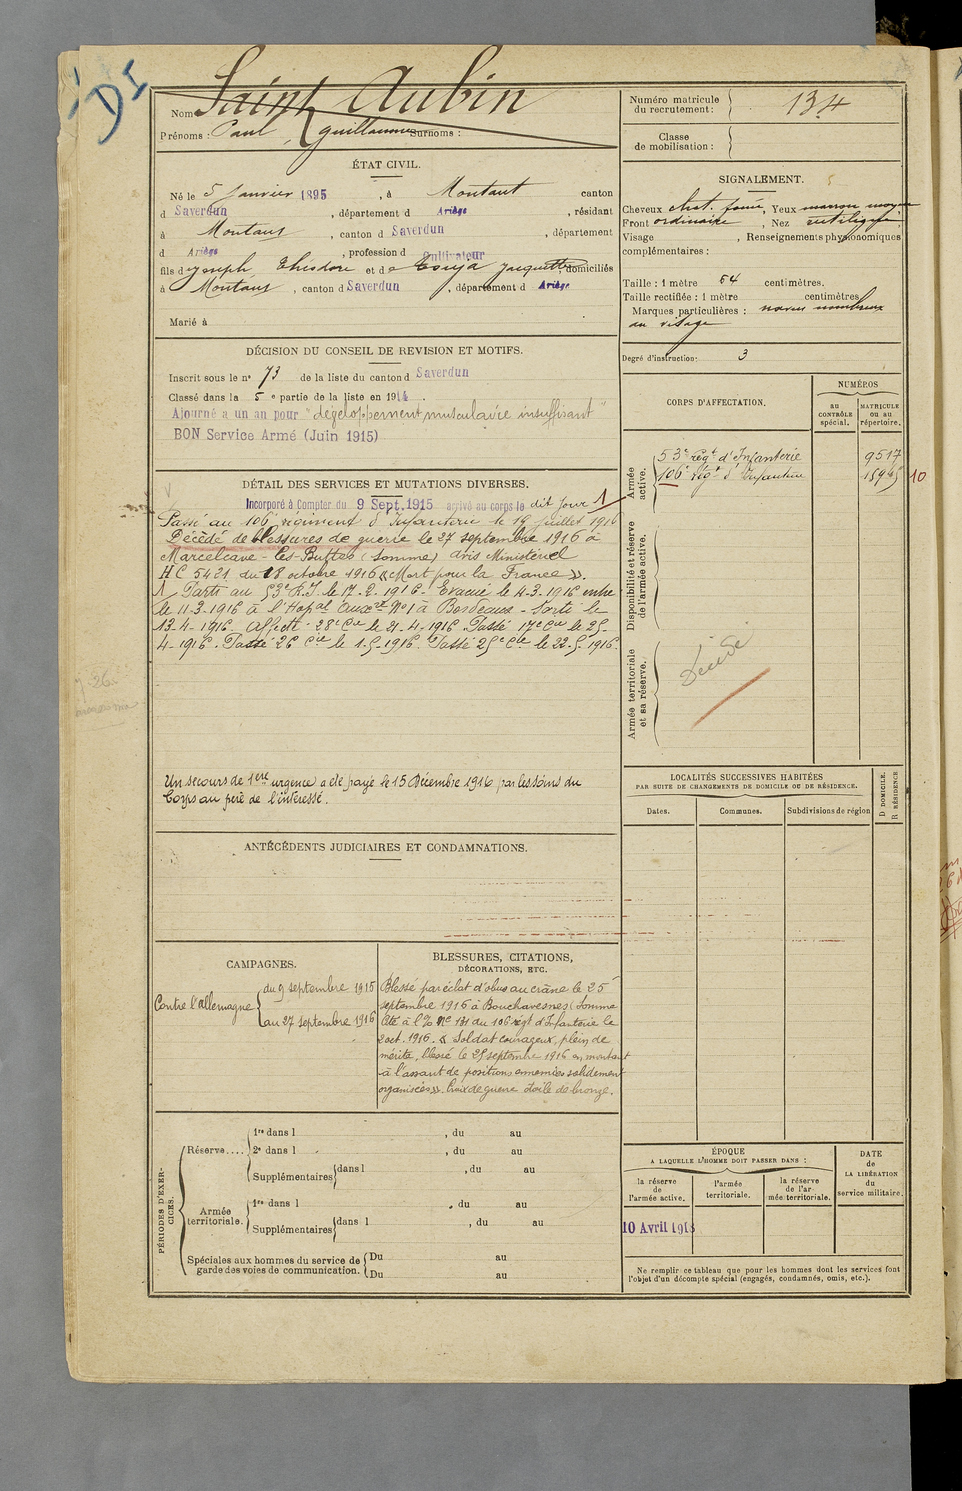 DI
Nom Saint Aubin
Prénoms : Paul, Guillaume Surnoms :
Numéro matricule
du recrutement : 134
Classe
de mobilisation :
ÉTAT CIVIL.
Né le 5 Janvier 1895, à Montaut canton
d Saverdun, département d Ariège, résidant
à Montaut, canton d Saverdun, département
d Ariège, profession d Cultivateur
fils d Joseph, Théodore et de Jacquette, domiciliés
à Montaut, canton d Saverdun, département d Ariège
Marié à
SIGNALEMENT.
Cheveux chat. foncé, Yeux marron moyen
Front ordinaire, Nez rectiligne,
Visage , Renseignements physionomiques
complémentaires :
Taille : 1 mètre 64 centimètres.
Taille rectifiée : 1 mètre centimètres
Marques particulières : noevus nombreux
au visage
Degré d'instruction : 3
DÉCISION DU CONSEIL DE REVISION ET MOTIFS.
Inscrit sous le n° 73 de la liste du canton d Saverdun
Classé dans la 5e partie de la liste en 1914.
Ajourné à un an pour "développement musculaire insuffisant"
BON Service Armé (Juin 1915)
DÉTAIL DES SERVICES ET MUTATIONS DIVERSES.
Incorporé à Compter du 9 Sept. 1915 arrivé au corps le dit jour 1
Passé au 106e régiment d'Infanterie le 19 juillet 1916
Décédé de blessures de guerre le 27 septembre 1916 à
Marcelcave-les-Buttes (Somme) avis Ministériel
HC 5421 du 18 octobre 1916 «Mort pour la France».
1 Parti au 53e R.I. le 17-2-1916 - Evacué le 4-3-1916 entré
le 11-3-1916 à l'Hopal Auxre N°1 à Bordeaux - Sorti le
13-4-1916. Affecté 28e Cie le 21-4-1916 Passé 17e Cie le 25-
4-1916. Passé 26 Cie le 1-5-1916. Passé 25e Cie le 22-5-1916.
Un secours de 1ere urgence a été payé le 15 Décembre 1916 par les soins du
Corps au père de l'intéressé.
CORPS D'AFFECTATION.
NUMÉROS
au
CONTRÔLE
spécial.
MATRICULE
ou au
répertoire.
Armée
active.
53e Régt d'Infanterie 9517
106e Régt d'Infanterie 10
Disponibilité et réserve
de l'armée active.
Armée territoriale
et sa réserve.
Décédé
LOCALITÉS SUCCESSIVES HABITÉES
PAR SUITE DE CHANGEMENTS DE DOMICILE OU DE RÉSIDENCE.
Dates.
Communes.
Subdivisions de région
D DOMICILE.
R RÉSIDENCE
ANTÉCÉDENTS JUDICIAIRES ET CONDAMNATIONS.
CAMPAGNES.
Contre l'Allemagne
du 9 septembre 1915
au 27 septembre 1916
BLESSURES, CITATIONS,
DÉCORATIONS, ETC.
Blessé par éclat d'obus au crâne le 25
septembre 1916 à Bouchavesnes (Somme
Cité à l'% N° 131 du 106 régt d'Infanterie le
2 oct. 1916. « Soldat courageux, plein de
mérite, blessé le 25 septembre 1916 en montant
à l'assaut de positions ennemies solidement
organisées». Croix de guerre étoile de bronze.
PÉRIODES D'EXER-
CICES.
Réserve....
1re dans l , du au
2e dans l , du au
Supplémentaires dans l , du au
Armée
territoriale.
1re dans l , du au
Supplémentaires dans l , du au
Spéciales aux hommes du service de
garde des voies de communication.
Du au
Du au
ÉPOQUE
A LAQUELLE L'HOMME DOIT PASSER DANS :
la réserve
de
l'armée active.
l'armée
territoriale.
la réserve
de l'ar-
mée territoriale.
DATE
de
LA LIBÉRATION
du
service militaire.
10 Avril 1918
Ne remplir ce tableau que pour les hommes dont les services font
l'objet d'un décompte spécial (engagés, condamnés, omis, etc.).